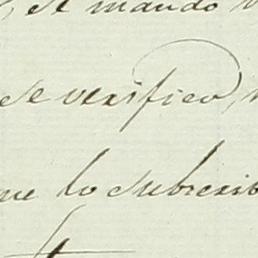 , el mando
se verificó,
que lo subrexis